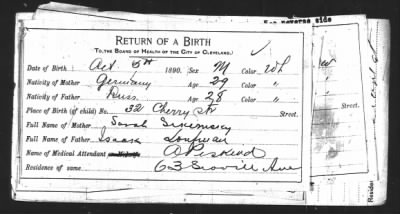 For reverse side
RETURN OF A BIRTH
(TO THE BOARD OF HEALTH OF THE CITY OF CLEVELAND.)
Date of Birth: Oct 5th 1890. Sex M Color Wh
Nativity of Mother Germany Age 29 Color "
Nativity of Father Russ. Age 28 Color "
Place of Birth (of child) No. 32 Cherry St Street.
Full Name of Mother Sarah
Full Name of Father Isaac
Name of Medical Attendant or Midwife A Peskind
Residence of same 63 Scovill Ave
Street.
Residen